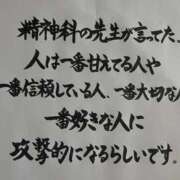 精神科の先生が言ってた。
人は一番甘えてる人や
一番信頼している人、一番大切な人
一番好きな人に
攻撃的になるらしいです。